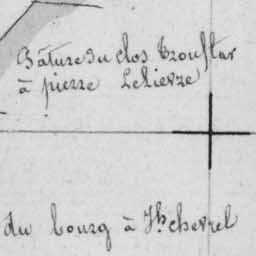 Pature du clos Troustar
à pierre Lelievre
du bourg à Jh chevrel